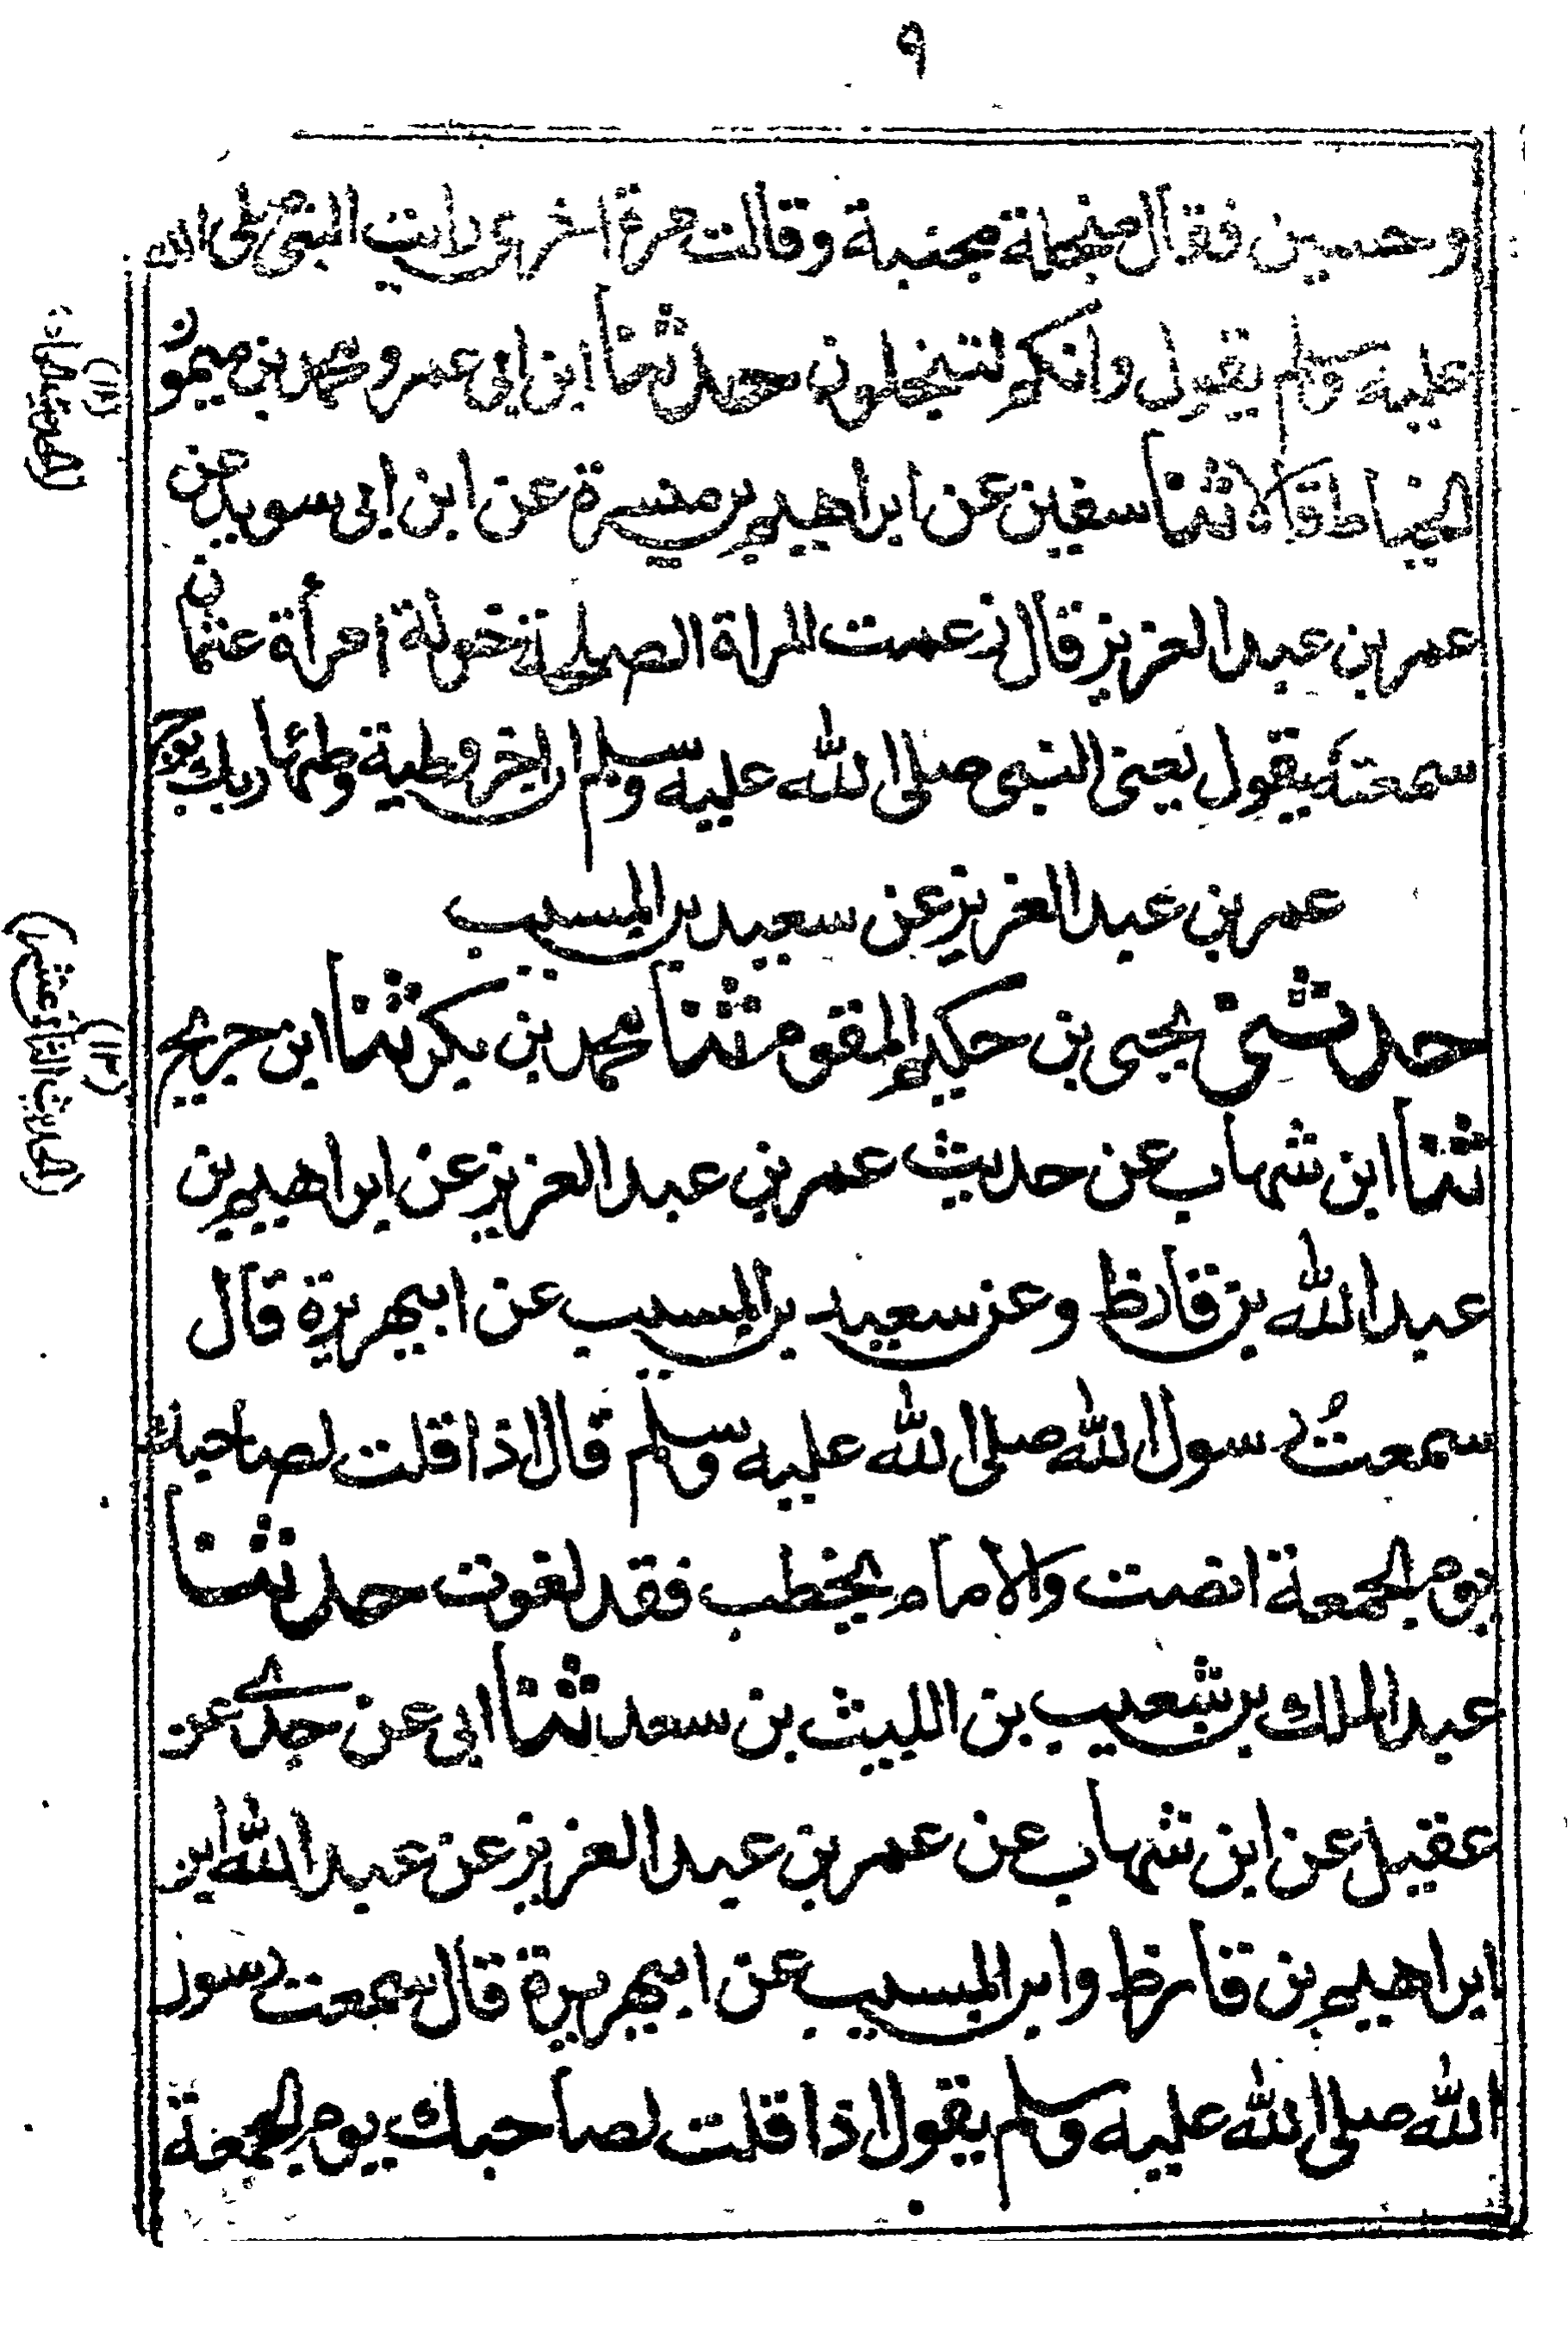 ٩
وحسين فقال منجلة مجنبة وقالت مرة اخرى رايت النبي صلى الله
عليه وسلم يقول وانكم لتنجلون حدثنا ابن ابي عمرو محمد بن ميمون
الخياط قالا ثنا سفين عن ابراهيم بن ميسرة عن ابن ابى سويد عن
عمر بن عبد العزيز قال زعمت المراة الصلحة خولة امرأة عثمان
سمعته يقول يعنى النبى صلى الله عليه وسلم ان اخر وطية وطئها ربك بوج
عمر بن عبد العزيز عن سعيد بن المسيب
حدثنى يحيى بن حكيم المقوم ثنا محمد بن بكر ثنا ابن جريج
ثنا ابن شهاب عن حديث عمر بن عبد العزيز عن ابراهيم بن
عبد الله بن قارظ وعن سعيد بن المسيب عن ابيهريرة قال
سمعتُ رسول الله صلى الله عليه وسلم قال اذا قلت لصاحبك
يوم الجمعة انصت والامام يخطب فقد لغوت حدثنا
عبد الملك بن شعيب بن الليث بن سعد ثنا ابى عن جدے عن
عقيل عن ابن شهاب عن عمر بن عبد العزيز عن عبد الله ابن
ابراهيم بن قارظ وابن المسيب عن ابيهريرة قال سمعت رسول
الله صلى الله عليه وسلم يقول اذا قلت لصاحبك يوم الجمعة
(١٢)
(١٣)